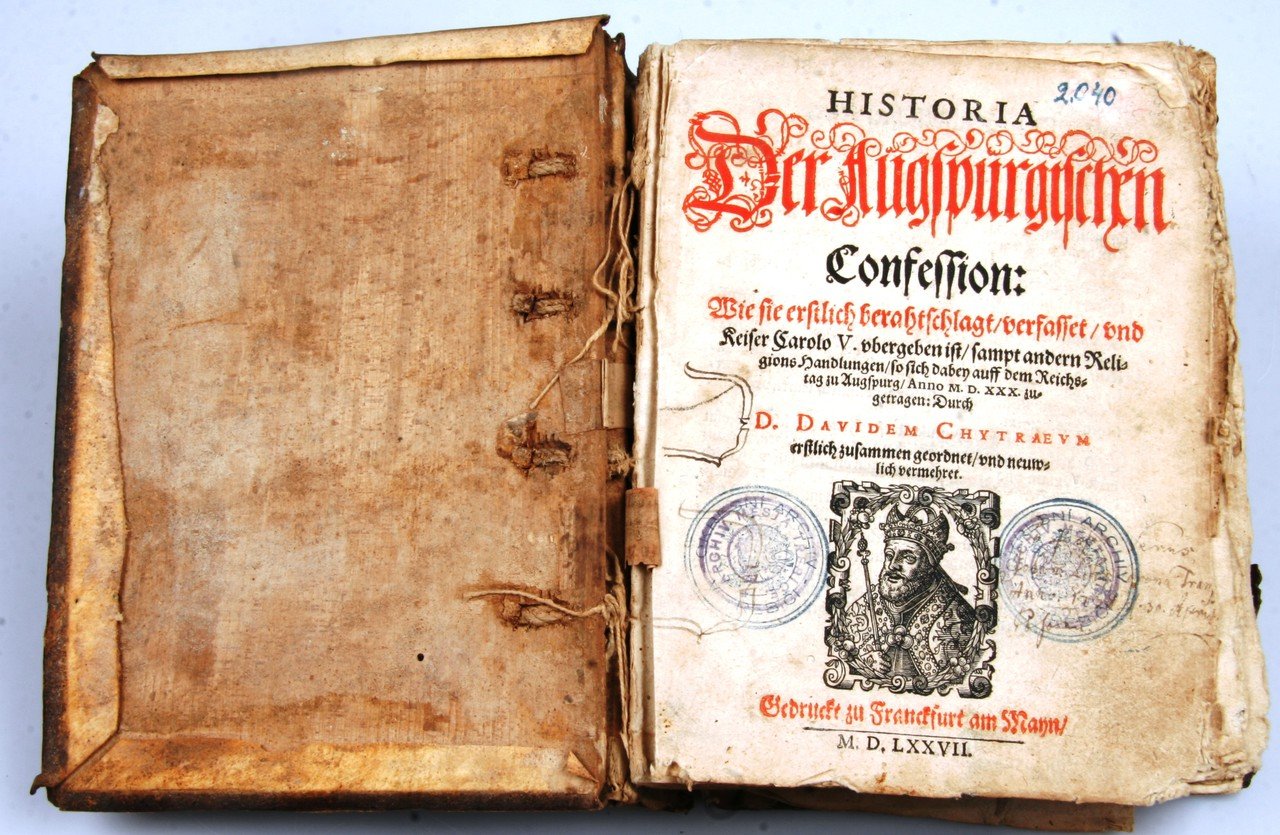 HISTORIA
2.040
Der Augſpurgiſchen
Confeſſion:
Wie ſie erſtlich berahtſchlagt/verfaſſet/vnd
Keiſer Carolo V. vbergeben iſt/ſampt andern Reli-
gions Handlungen/ſo ſich dabey auff dem Reichs-
tag zu Augſpurg/Anno M. D. XXX. zu-
getragen: Durch
D. DAVIDEM CHYTRAEVM
erſtlich zuſammen geordnet/vnd neuw-
lich vermehret.
Gedruckt zu Franckfurt am Mayn/
M. D. LXXVII.